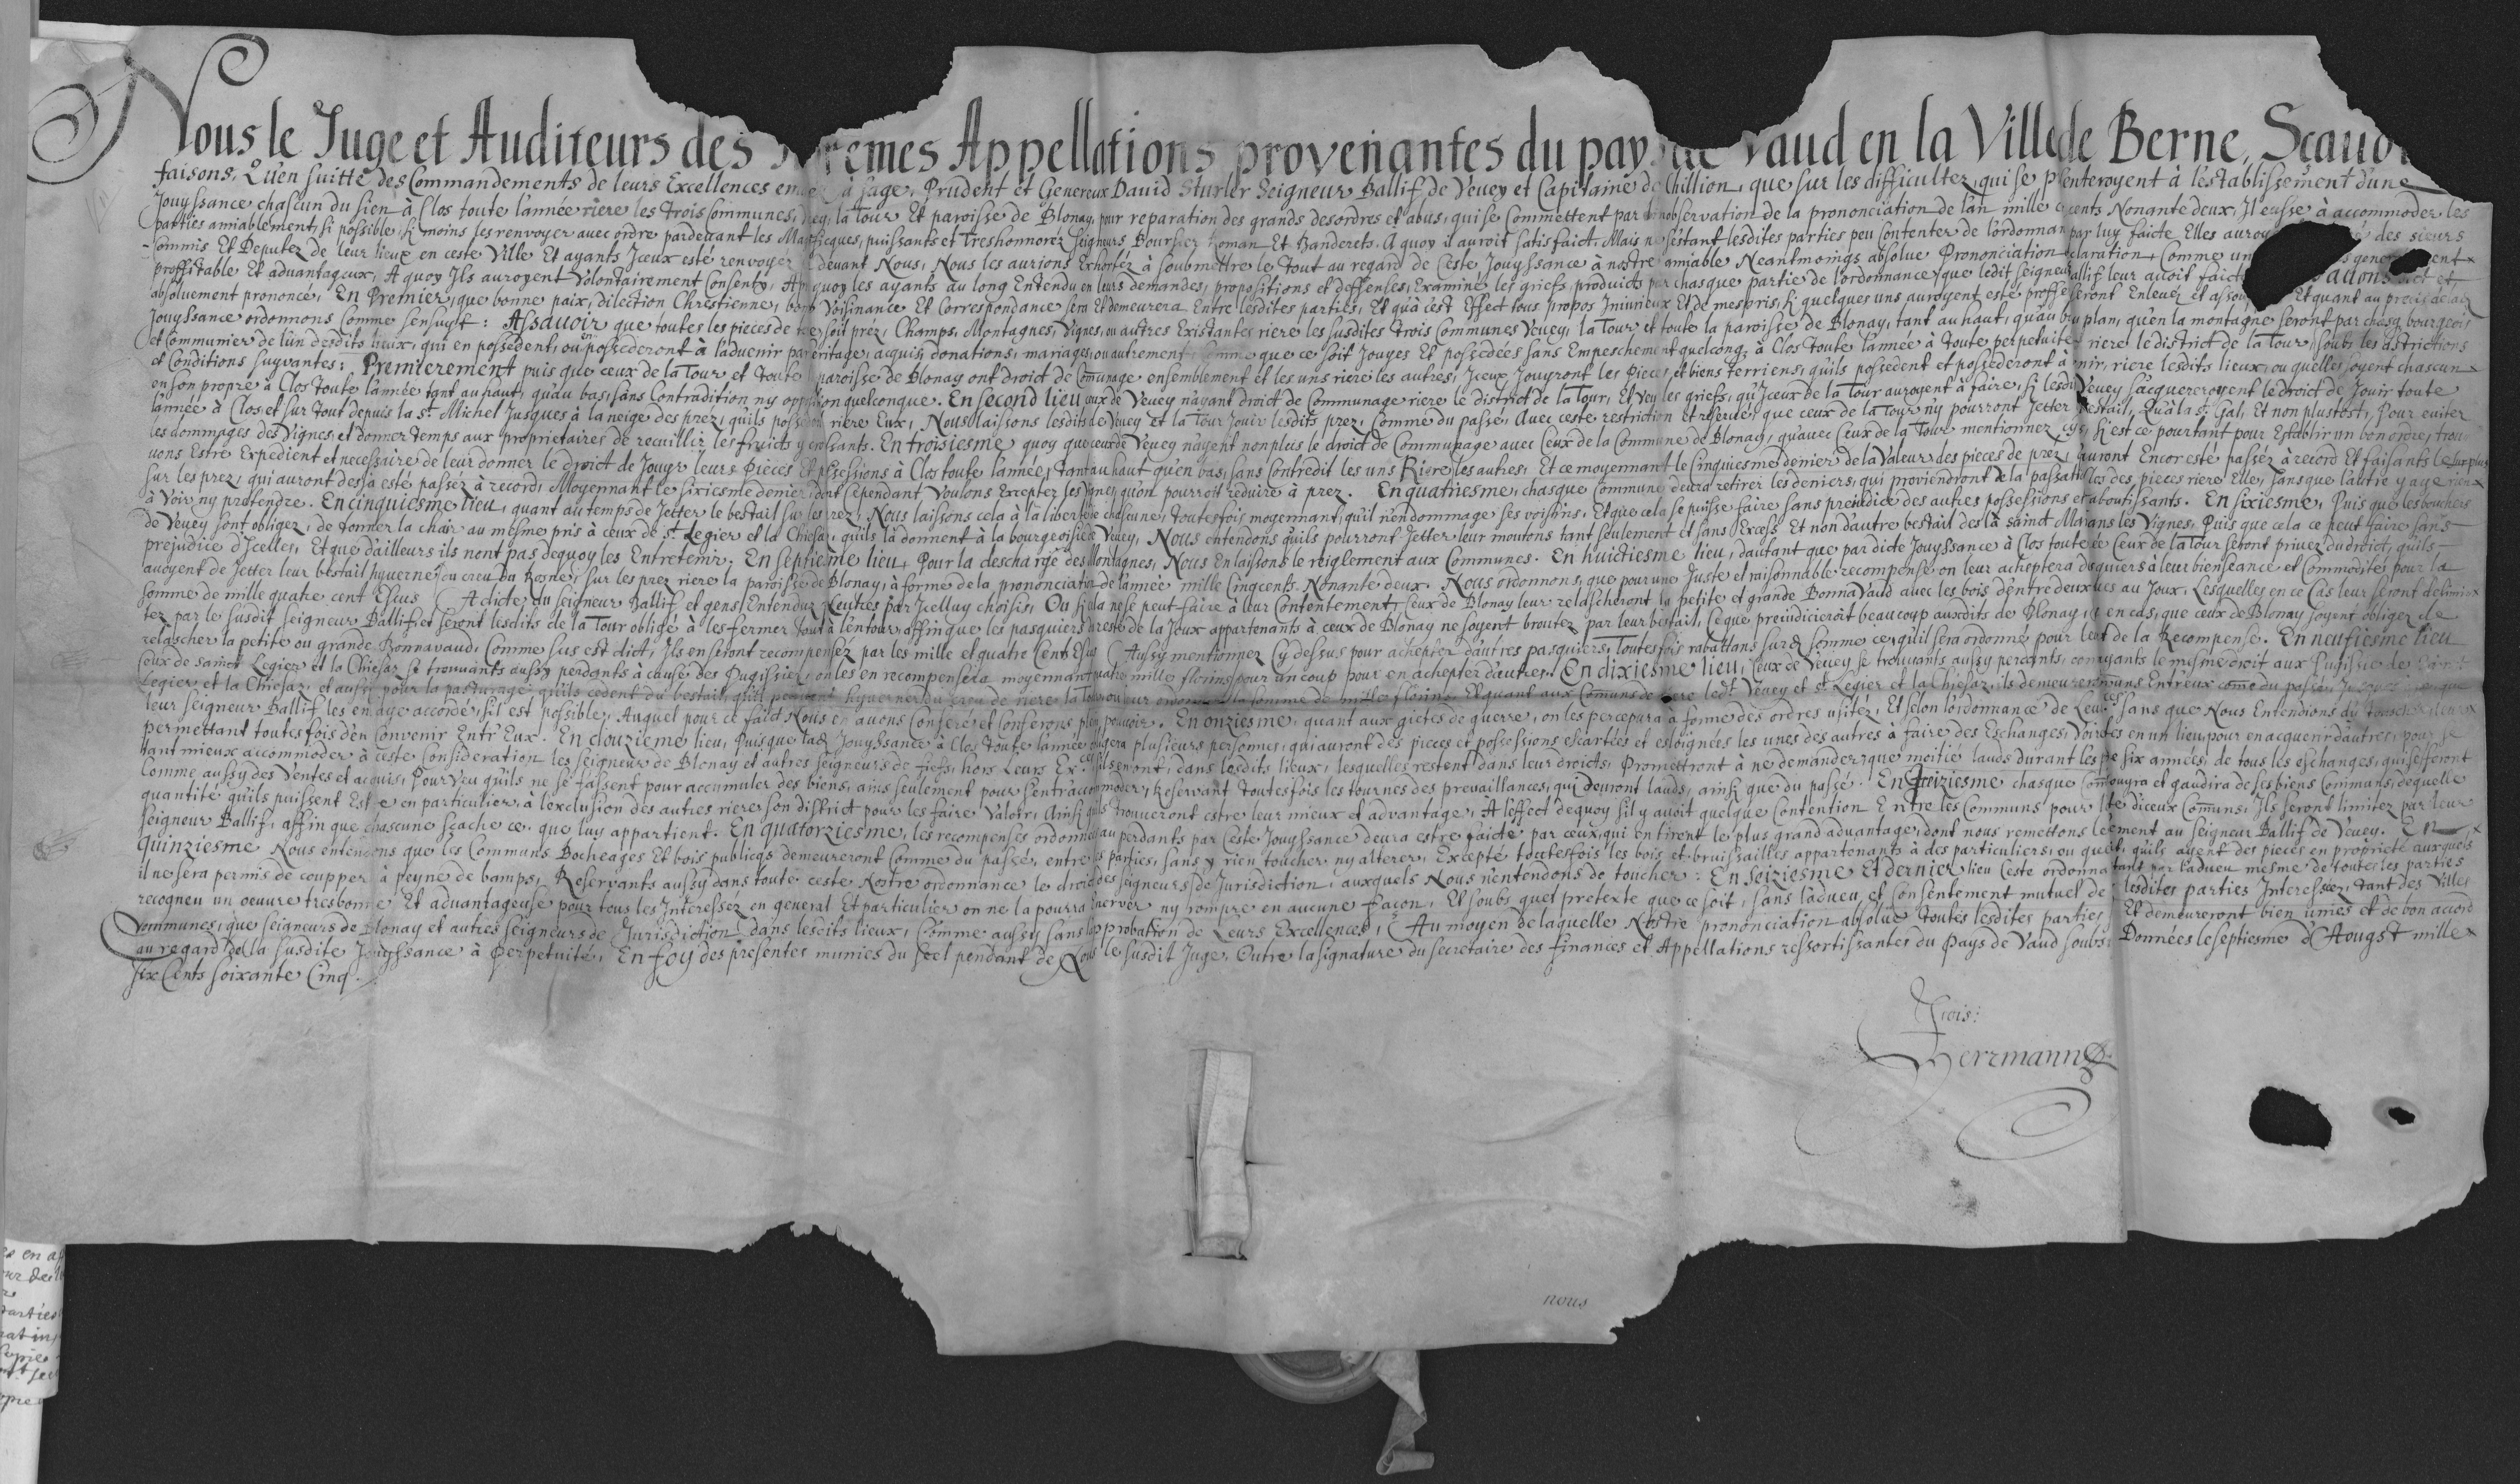 Nous le Juge et Auditeurs des remes Appellations provenantes du pays de Vaud en la Ville de Berne, Scauo
faisons, Qu'en suitte des Commandements de leurs Excellences à sage, Prudent et Genereux David Sturler Seigneur Ballif de Vevey et Capitaine de Chillion, que sur les difficultez, qui se presenteroyent à l'establissement d'une
Jouyssance chascun du sien à Clos toute l'année riere les trois Communes, Vevey, la Tour Et paroisse de Blonay, pour reparation des grands desordres et abus, qui se Commettent par observation de la prononciation de l'an mille cents Nonante deux, Il eusse à accommoder les
parties amiablement, si possible, si moins les renvoyer avec ordre pardevant les Magnificques, puissants et Treshonnorez Seigneurs Boursier Roman Et Banderets. A quoy il auroit satisfaict. Mais ne s'éstant lesdites parties peu Contenter de l'ordonnan par luy faicte Elles auroy des sieurs
Commis Et Deputez de leur lieux en ceste Ville Et ayants Iceux esté renvoyez devant Nous, Nous les aurions Exhortéz à soubmettre le tout au regard de Ceste Jouyssance à nostre amiable Neantmoings absolue Prononciation claration Comme un
proffitable Et advantageux, A quoy Ils auroyent Volontairement Consenty, Apr quoy les ayants au long Entendu en leurs demandes, propositions et deffenses, Examiné les griefs, produicts par chasque partie de l'ordonnance, que ledit seigneur Ballif leur avoit faict
absoluement prononcé, En Premier, que bonne paix, dilection Chrestienne, bonne Voisinance Et Correspondance sera Et demeurera Entre lesdites parties, Et qu'à cest Effect tous propos Iniurieux, Et de mespris, si quelques uns auroyent esté proffe seront Enlevéz et assou Et quant au
Jouyssance ordonnons Comme sensuyt : Assavoir que toutes les pieces de soit prez, Champs, Montagnes, Vignes, ou autres Existantes riere les susdites Trois Communes Vevey, la Tour et toute la paroisse de Blonay, tant au haut, qu'au plan, qu'en la montagne seront par chasq bourgeois
et Communier de l'un desdits lieux, qui en possedent, ou en possederont à l'advenir par heritage, acquis, donations, mariages, ou autrement, que ce soit Jouyes Et possedées sans Empeschement quelconq à Clos toute l'année à toute perpetuite riere le district de la Tour, soubs les astrictions
et Conditions suyvantes : Premierement puis que ceux de la Tour et toute paroisse de Blonay ont droict de Comunage ensemblement et les uns riere les autres, Iceux Jouyront les Pieces, et biens terriens, qu'ils possedent et possederont à riere lesdits lieux, ou quelles soyent chascun
en son propre à Clos toute l'année tant au haut, qu'au bas, sans Contradition ny opposition quelconque. En second lieu ceux de Vevey n'ayant droict de Communage riere le district de la Tour, Et Veu les griefs, qu'Iceux de la Tour auroyent à faire, si lesdi Vevey s'acquereroyent le droict de Jouir toute
l'année à Clos, et sur tout depuis la St. Michel Jusques à la neige des prez, qu'ils possedent riere Eux, Nous laissons lesdits de Vevey et la Tour Jouir lesdits prez, Comme du passé Avec ceste restriction et reserve, que ceux de la Tour n'y pourront Jetter bestail, Qu'à la St. Gal, Et non plustost, Pour eviter
les dommages des Vignes, et donner temps aux proprietaires de recuillir les fruicts y croissants. En troisiesme quoy que ceux de Vevey n'ayent non plus le droict de Communage avec Ceux de la Commune de Blonay, qu'avec Ceux de la Tour mentionnez si est ce pourtant pour Establir un bon ordre, trou
vons Estre Expedient et necessaire de leur donner le droict de Jouyr leurs Pieces Et possessions à Clos toute l'année, tant au haut qu'en bas, sans Contredit les uns Riere les autres, Et ce moyennant le Cinquiesme denier de la Valeur des pieces de prez, auront Encor esté passéz à record Et faisants le
sur les prez, qui auront desja esté passéz à record, Moyennant le sixiesme denier, dont Cependant Voulons Excepter les Vignes, qu'on pourroit reduire à prez. En quatriesme, chasque Commune devra retirer les deniers, qui proviendront de la passati des pieces riere Elle, sans que l'autre y aye rien
à Voir, ny pretendre. En cinquiesme lieu, quant au temps de Jetter le bestail sur les prez, Nous laissons cela à la liberté de chascune, toutesfois moyennant, qu'il n'endommage ses voisins, Et que cela se puisse faire sans preiudice des autres possessions et aboutissants. En sixiesme, Puis que les bouchers
de Vevey sont obligez, de donner la chair au mesme pris à ceux de St. Legier et la Chiesaz, qu'ils la donnent à la bourgeoisie de Vevey, Nous entendons qu'ils pourront Jetter leur moutons tant seulement et sans Excess Et non d'autre bestail des la saint dans les Vignes, Puis que cela ce peut faire sans
prejudice d'Icelles, Et que d'ailleurs ils nont pas dequoy les Entretenir. En septiesme lieu, Pour la descharge des Montagnes, Nous En laissons le reiglement aux Communes. En huictiesme lieu, d'autant que par dicte Jouyssance à Clos toute Ceux de la Tour seront privez du droict, qu'ils
avoyent de Jetter leur bestail hyverné, sur les prez riere la paroisse de Blonay, à forme de la prononciation de l'année mille Cinqcents Nonante deux. Nous ordonnons, que pour une Juste et raisonnable recompense on leur acheptera à leur bienseance et Commodité pour la
somme de mille quatre cent Escus A dicte du Seigneur Ballif et gens Entenduz Neutres par Icelluy choisis, Ou si cela ne se peut faire à leur Contentement, Ceux de Blonay leur relascheront la petite et grande BonnaVaud avec les bois d'entre deux au Joux, Lesquelles en ce Cas leur seront delimi
tez par le susdit Seigneur Ballif, et seront lesdits de la Tour obligé à les fermer tout à l'entour, affin que les pasquiers reste de la Joux appartenants à ceux de Blonay ne soyent broutez par leur bestail, Ce que preiudicieroit beaucoup auxdits de Blonay, en cas, que ceux de Blonay soyent obligez de
relascher la petite ou grande Bonnavaud, Comme sus est dict, Ils en seront recompensez par les mille et quatre Cent Escus Aussy mentionnez Cy dessus pour achepter d'autres pasquiers, Toutesfois rabattans somme ce, qu'il sera ordonné pour de la Recompense. En neufiesme lieu
Ceux de Sainct Legier et la Chiesaz se trouvants aussy perdants à cause des Pugissier, on les en recompensera moyennant quatre mille florins, pour un coup pour en achepter d'autres. En dixiesme lieu, Ceux de Vevey se trouvants aussy perdants, ayants le mesme droit aux
Legier et la Chiesaz, et aussi pour la pasturage, qu'ils cedent du bestail, hyverner riere la Tour, on leur la somme de mille florins Et quant aux Comuns de riere ledt. Vevey et St. Legier et la Chiesaz, ils demeureront Entr'eux come du passé, que
leur Seigneur Ballif les en aye accordé, s'il est possible, Auquel pour ce faict Nous en avons Conferé et Conferons plein pouvoir. En onziesme, quant aux gietes de guerre, on les percepvra à forme des ordres usitez, Et selon l'ordonnance de Leu. sans que Nous Entendions
permettant toutesfois d'en Convenir Entr'Eux. En douzieme lieu, Puisque lad. Jouyssance à Clos toute l'année obligera plusieurs personnes, qui auront des pieces et possessions escartées et esloignées les unes des autres à faire des Eschanges, en un lieu, pour en acquerir d'autres, pour se
tant mieux accommoder à ceste Consideration les Seigneur de Blonay et autres Seigneurs de fiefs, hors Leurs Ex. s'ils en ont, dans lesdits lieux, lesquelles restent dans leur droicts, Promettront à ne demander, que moitié lauds durant l'espe six années, de tous les eschanges, qui se feront
Comme aussy des Ventes et acquis, Pour veu qu'ils ne se fassent pour accumuler des biens, ains seulement pour s'entr'accommoder, Reservant toutesfois les tournes des prevaillances, qui devront lauds, ainsi que du passé. En Treiziesme chasque Com Jouyra et gaudira de ses biens Communs, dequelle
quantité qu'ils puissent Estre en particulier, à l'exclusion des autres riere son district pour les faire Valoir, Ainsi qu'ils trouveront estre leur mieux et advantage, A l'effect dequoy s'il y avoit quelque Contention Entre les Communs pour diceux Comuns, Ils seront limitez par leur
Seigneur Ballif, affin que chascune scache ce, que luy appartient. En quatorziesme, les recompenses ordonnées au perdants par Ceste Jouyssance devra estre faicte par ceux, qui en tirent le plus grand advantage, dont nous remettons le ment au Seigneur Ballif de Vevey. En
Quinziesme Nous entendons que les Communs Bocheages Et bois publicqs demeureront Comme du passé, entre les parties, sans y rien toucher ny alterer, Excepté toutesfois les bois et bruissailles appartenants à des particuliers, ou que qu'ils ayent des pieces en proprieté auxquels
il ne sera permis de coupper à peyne de bamps, Reservants aussy dans toute ceste Nostre ordonnance le droict des Seigneurs de Jurisdiction, auxquels Nous n'entendons de toucher : En seiziesme Et dernier lieu Ceste ordonna tant par l'adveu mesme de toutes les parties
recogneu un oeuvre tresbonne Et advantageuse pour tous les Interessez en general Et particulier on ne la pourra enerver ny rompre en aucune facon, Et soubs quel pretexte que ce soit, sans l'adveu et Consentement mutuel de lesdites parties Interessez, tant des Villes
Communes, que Seigneurs de Blonay et autres Seigneurs de Jurisdiction dans lesdits lieux, Comme aussy sans l'approbation de Leurs Excellences, Au moyen de laquelle Nostre prononciation absolue toutes lesdites parties Et demeureront bien unies et de bon accord
au regard de la susdite Jouyssance à Perpetuité, En foy des presentes munies du seel pendant de Nous le susdit Juge, Outre la signature du Secretaire des finances et Appellations ressortissantes du Pays de Vaud soubs. Données le septiesme d'Aougst mille
six Cents soixante Cinq.
Herrmann
nous